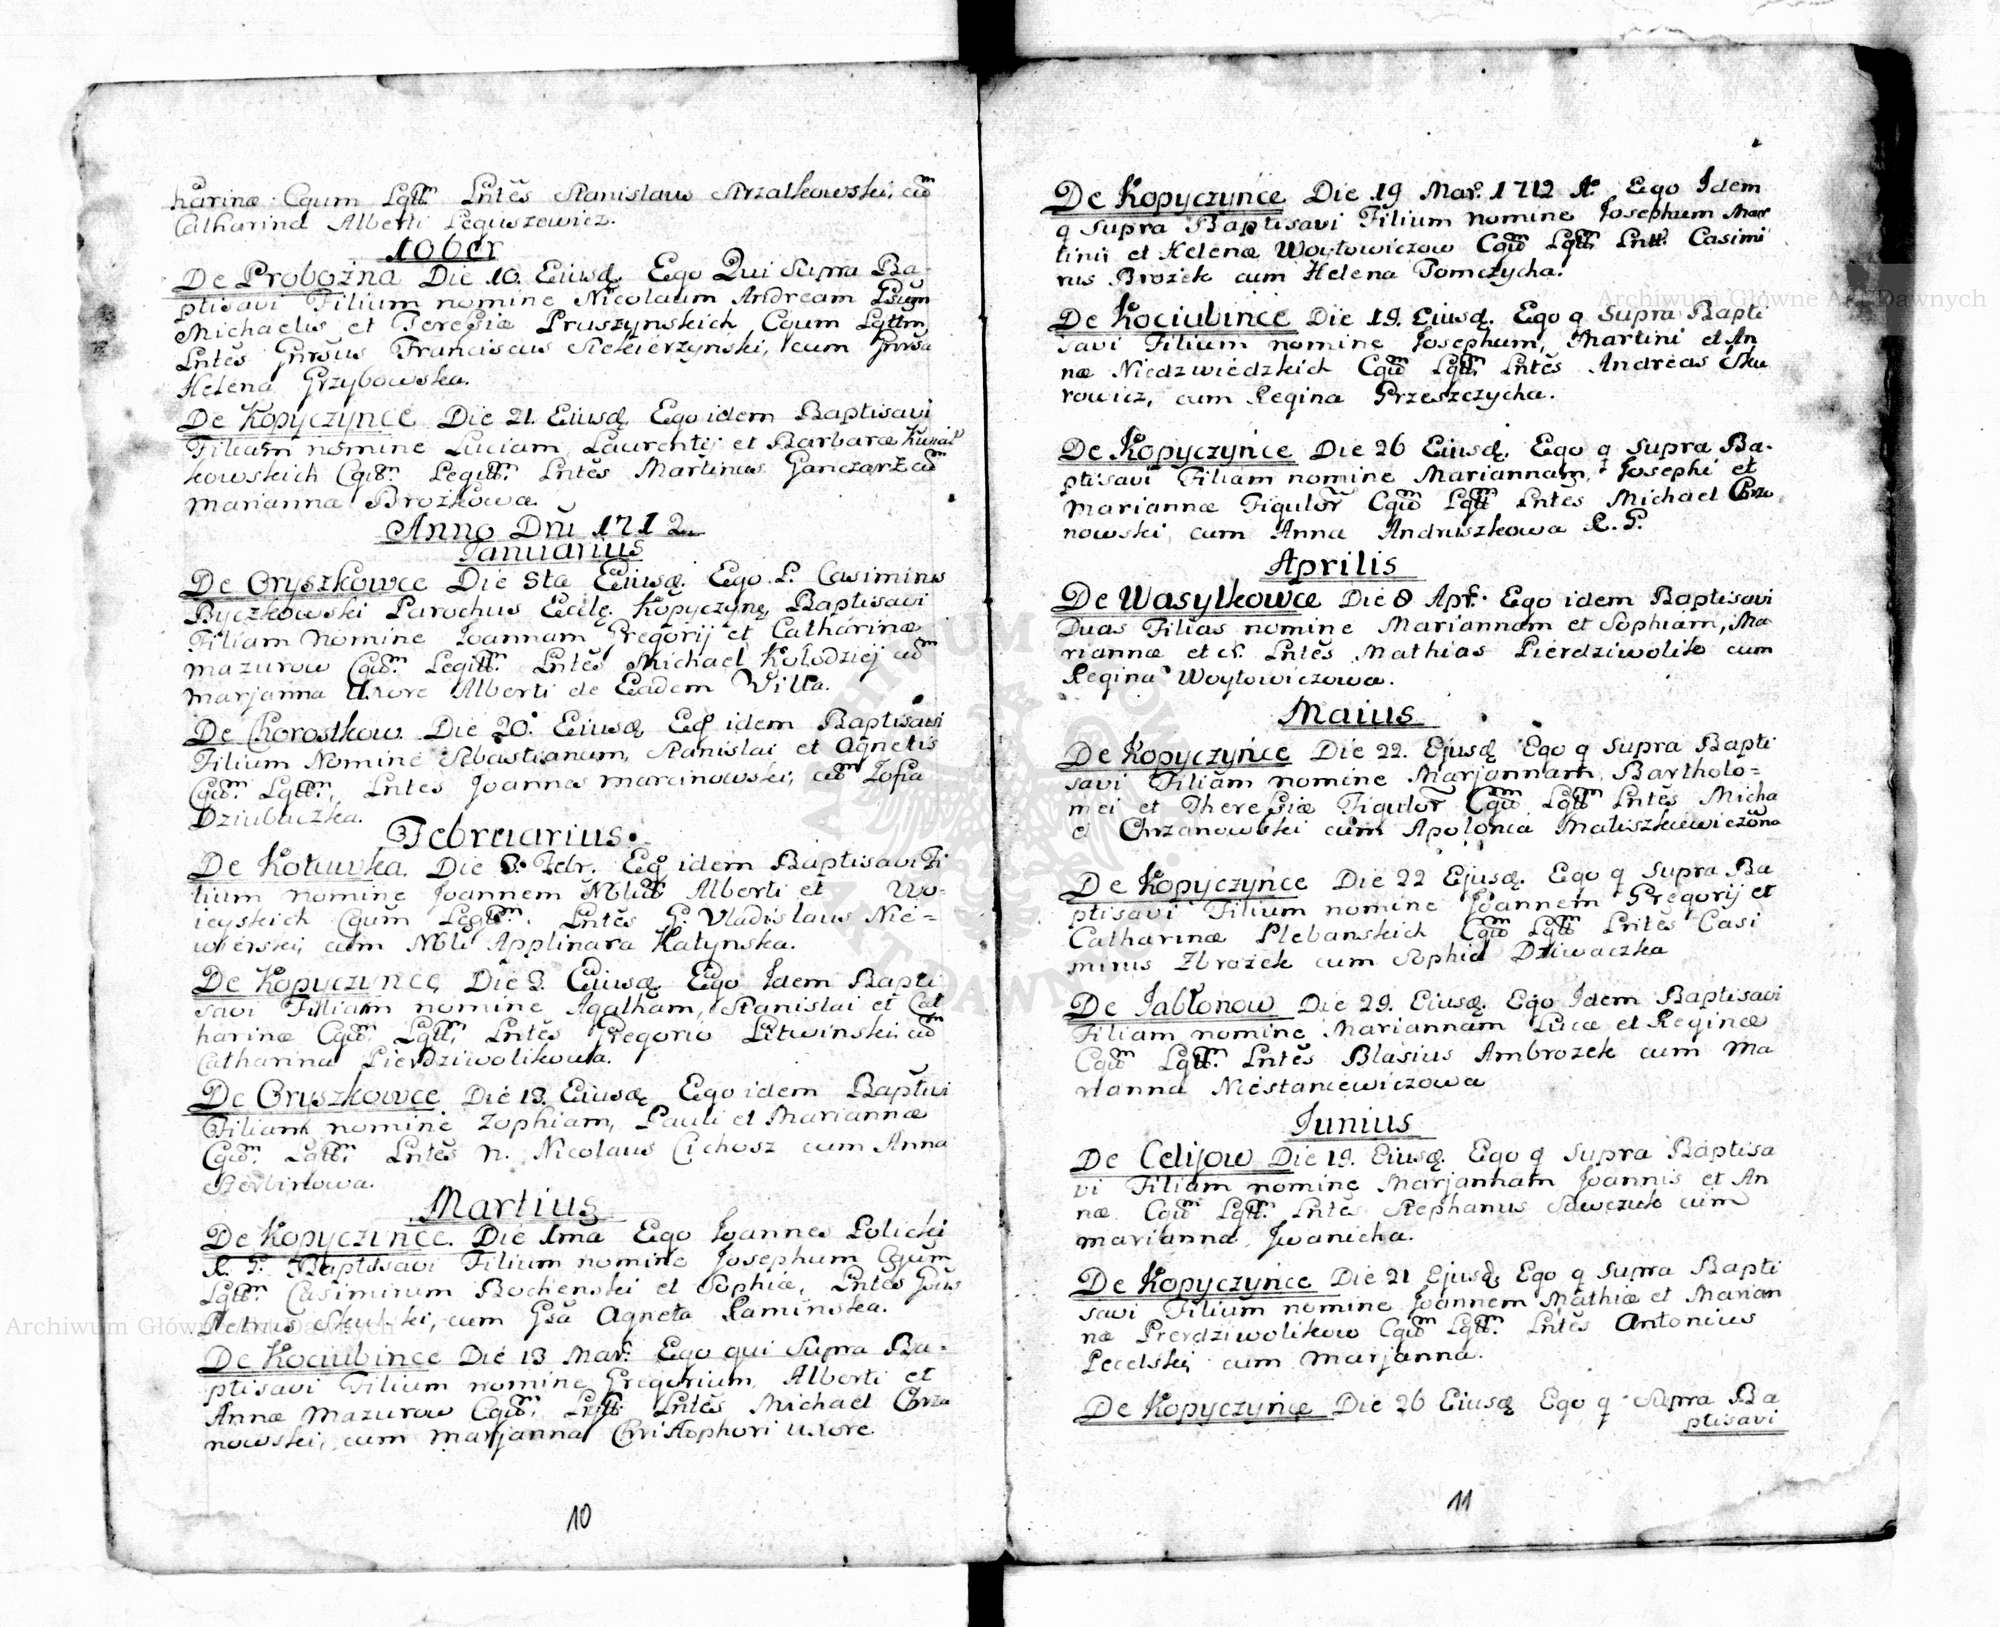 harinæ Cgum Lgttm Lntěs Stanislaus Strzałkowski, cūm
Catharina Alberti Leguszewicz.
10ber
De Probożna Die 10. Eiusdę. Ego Qui Supra Ba-
ptisavi Filium nomine Nicolaum Andream
Michaelis et Teresiæ Pruszynskich, Cgum Lgttm
Lntěs Gnrsus Franciscus Siekierzynski, cum Gnrsa
Helena Grzybowska.
De Kopyczynce Die 21. Eiusdę Ego idem Baptisavi
Filiam nomine Luciam Laurentij et Barbaræ
kowskich Legttm. Lntěs Martinus Ganczarz cūm
Marianna Brozkowa.
Anno Dňi 1712.
Ianuarius
De Oryszkowce Die 8ta Eiusdę. Ego P. Casimirus
Byczkowski Parochus Ecclę Kopyczynę, Baptisavi
Filiam Nomine Joannam Gregorij et Catharinæ
Mazurow Cgūm Legittm. Lntěs Michael Kołodziej cūm
Marjanna Uxore Alberti de Eadem Villa.
De Chorostkow Die 20. Eiusdę Eg idem Baptisavi
Filium Nomine Sebastianum, Stanislai et Agnetis
Cgūm. Lgttm., Lntes Joannes Marcinowski, cūm Zofia
Dziubaczka.
Februarius.
De Kotuwka. Die 3. Febr. Eg idem Baptisavi Fi
lium nomine Joannem Alberti et Wo-
icyskich Cgum Legttm. Lntěs G. Vladislaus Nie-
wierski, cum Nbli Applinara Hatynska.
De Kopyczynce Die 3. Eiusdę Ego Idem Bapti
savi Filiam nomine Agatham, Stanislai et Cat
harinæ Cgūm. Lgttm. Lntěs Gregorio Litwinski cūm
Catharina Pierdziwolikowa.
De Oryszkowce Die 13. Eiusdę Ego idem Baptivi
Filiam nomine Zophiam, Pauli et Mariannæ
Cgūm. Lgttm. Lntěs N. Nicolaus Cichosz cum Anna
Martius
De Kopyczynce. Die 1ma Ego Joannes Policki
R. P. Baptisavi Filium nomine Josephum Cgum
Lgttm. Casimirum Bochenski et Sophiæ, Lntěs Gnrs
Petrus Skulski, cum Gsa Agneta Kaminska.
De Kociubince Die 13 Mar. Ego qui Supra Ba-
ptisavi Filium nomine Gregorium, Alberti et
Annæ Mazurow Cgūm. Lgttm Lntěs Michael Chrza
nowski, cum Marjanna Christophori uxore.
10
De Kopyczyńce Die 19 Mar. 1712 A. Ego Idem
q Supra Baptisavi Filium nomine Josephum Mar
tini et Helenæ Woytowiczow Cgūm Lgttm Lntt. Casimi
rus Brożek cum Helena Tomczycha.
De Kociubince Die 19. Eiusdę. Ego q Supra Bapti
savi Filium nomine Josephum, Martini et An
næ Niedzwiedzkich Cgūm Lgttm Lntěs Andreas Sku
rowicz, cum Regina Przeszczycha.
De Kopyczyńce Die 26 Eiusdę, Ego q Supra Ba-
ptisavi Filiam nomine Mariannam, Josephi et
Mariannæ Figulor Cgūm Lgttm Lntěs Michael Chrza
nowski, cum Anna Andruszkowa R. P.
Aprilis
De Wasylkowce Die 8 Apr. Ego idem Baptisavi
Duas Filias nomine Mariannam et Sophiam, Ma
riannæ et N. Lntěs Mathias Pierdziwolik cum
Regina Woytowiczowa.
Maius
De Kopyczyńce Die 22. Ejusdę Ego q Supra Bapti
savi Filiam nomine Marjannam, Bartholo=
mei et Theresiæ Figulor Cgūm Lgttm Lntěs Micha
el Chrzanowski cum Apolonia Matiszkiewiczowa
De Kopyczyńce Die 22 Ejusdę. Ego q Supra Ba
ptisavi Filium nomine Joannem Gregorij et
Catharinæ Plebanskich Cgūm Lgttm Lntěs Casi
mirus Zbrożek cum Sophia Dziwaczka
De Jabłonow Die 29. Eiusdę. Ego Idem Baptisavi
Filiam nomine Mariannam Lucæ et Reginæ
Cgūm Lgttm. Lntěs Blasius Ambrozek cum Ma
rianna Niestaniewiczowa
Iunius
De Celijow Die 19. Eiusdę. Ego q Supra Baptisa
vi Filiam nomine Marjannam Joannis et An
næ Cgūm Lgttm. Lntěs Stephanus Sawczuk cum
Marianna Iwanicha.
De Kopyczyńce Die 21 Ejusdę Ego q Supra Bapti
savi Filium nomine Joannem Mathiæ et Marian
næ Pierdziwolikow Cgūm Lgttm. Lntěs Antonius
Pecelski, cum Marjanna.
De Kopyczyńce Die 26 Eiusdę Ego q Supra Ba
ptisavi
11
Archiwum Główne Akt Dawnych
Archiwum Główne Akt Dawnych
ARCHIWUM GŁÓWNE AKT DAWNYCH